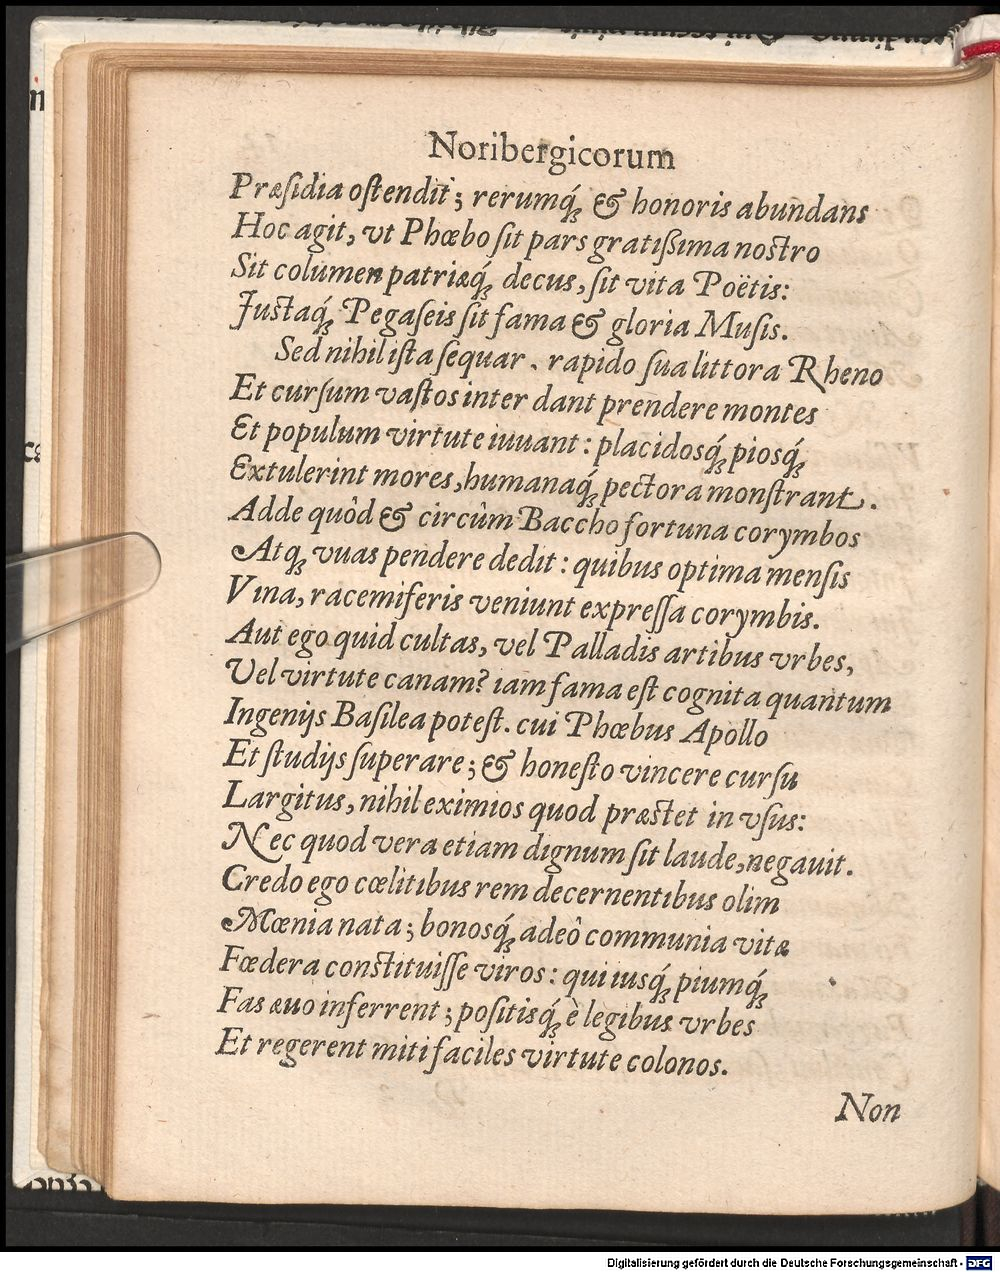 Noribergicorum
Præſidia oſtendit; rerumq́; & honoris abundans
Hoc agit, vt Phœbo ſit pars gratiſsima noſtro
Sit columen patriæq́; decus, ſit vita Poëtis:
Juſtaq́; Pegaſeis ſit fama & gloria Muſis.
Sed nihil iſta ſequar. rapido ſua littora Rheno
Et curſum vaſtos inter dant prendere montes
Et populum virtute iuuant: placidosq́; piosq́;
Extulerint mores, humanaq́; pectora monſtrant.
Adde quòd & circùm Baccho fortuna corymbos
Atq; vuas pendere dedit: quibus optima menſis
Vina, racemiferis veniunt expreſſa corymbis.
Aut ego quid cultas, vel Palladis artibus vrbes,
Vel virtute canam? iam fama eſt cognita quantum
Ingenijs Baſilea poteſt. cui Phœbus Apollo
Et ſtudijs ſuperare; & honeſto vincere curſu
Largitus, nihil eximios quod præſtet in vſus:
Nec quod vera etiam dignum ſit laude, negauit.
Credo ego cœlitibus rem decernentibus olim
Mœnia nata; bonosq́; adeò communia vitæ
Fœdera conſtituiſſe viros: qui iusq́; piumq́;
Fas æuo inferrent; poſitisq́; è legibus vrbes
Et regerent miti faciles virtute colonos.
Non
Digitalisierung gefördert durch die Deutsche Forschungsgemeinschaft - DFG